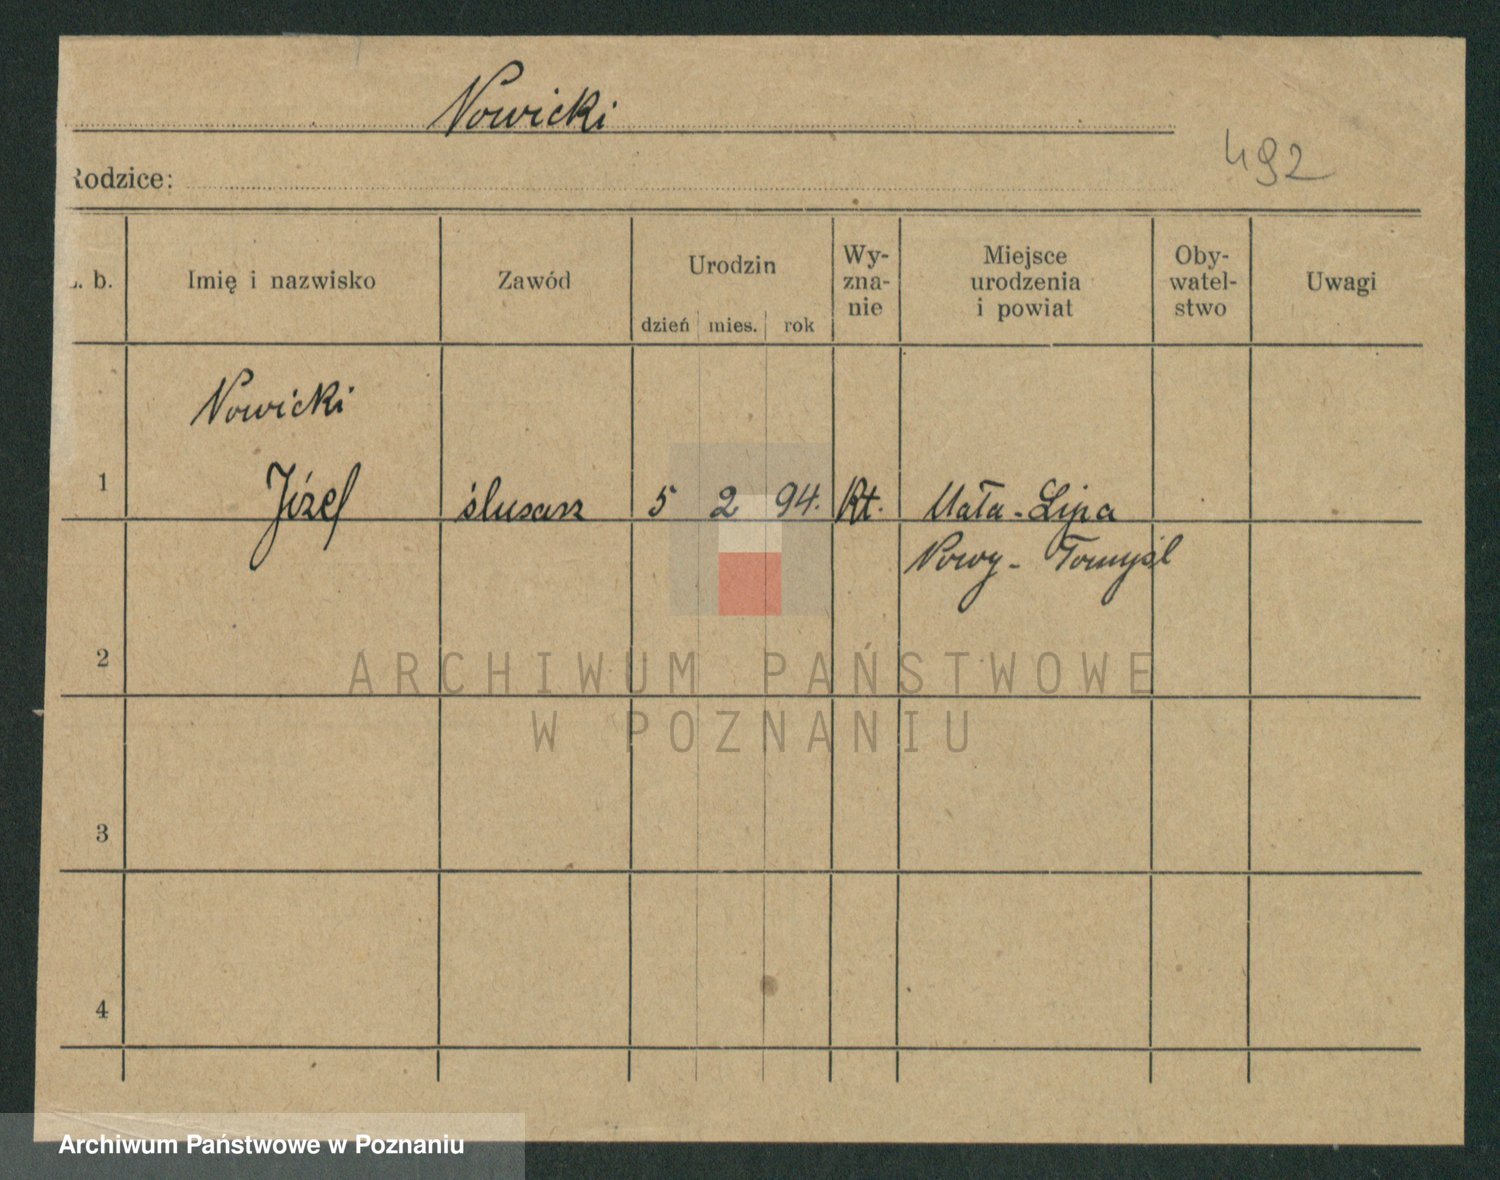 Nowicki
492
Rodzice:
L. b.
Imię i nazwisko
Zawód
Urodzin
dzień mies. rok
Wy-
zna-
nie
Miejsce
urodzenia
i powiat
Oby-
watel-
stwo
Uwagi
Nowicki
1 Józef ślusarz 5 2 94. Kt. Mała-Lipa
Nowy-Tomyśl
2
3
4
ARCHIWUM PAŃSTWOWE
W POZNANIU
Archiwum Państwowe w Poznaniu